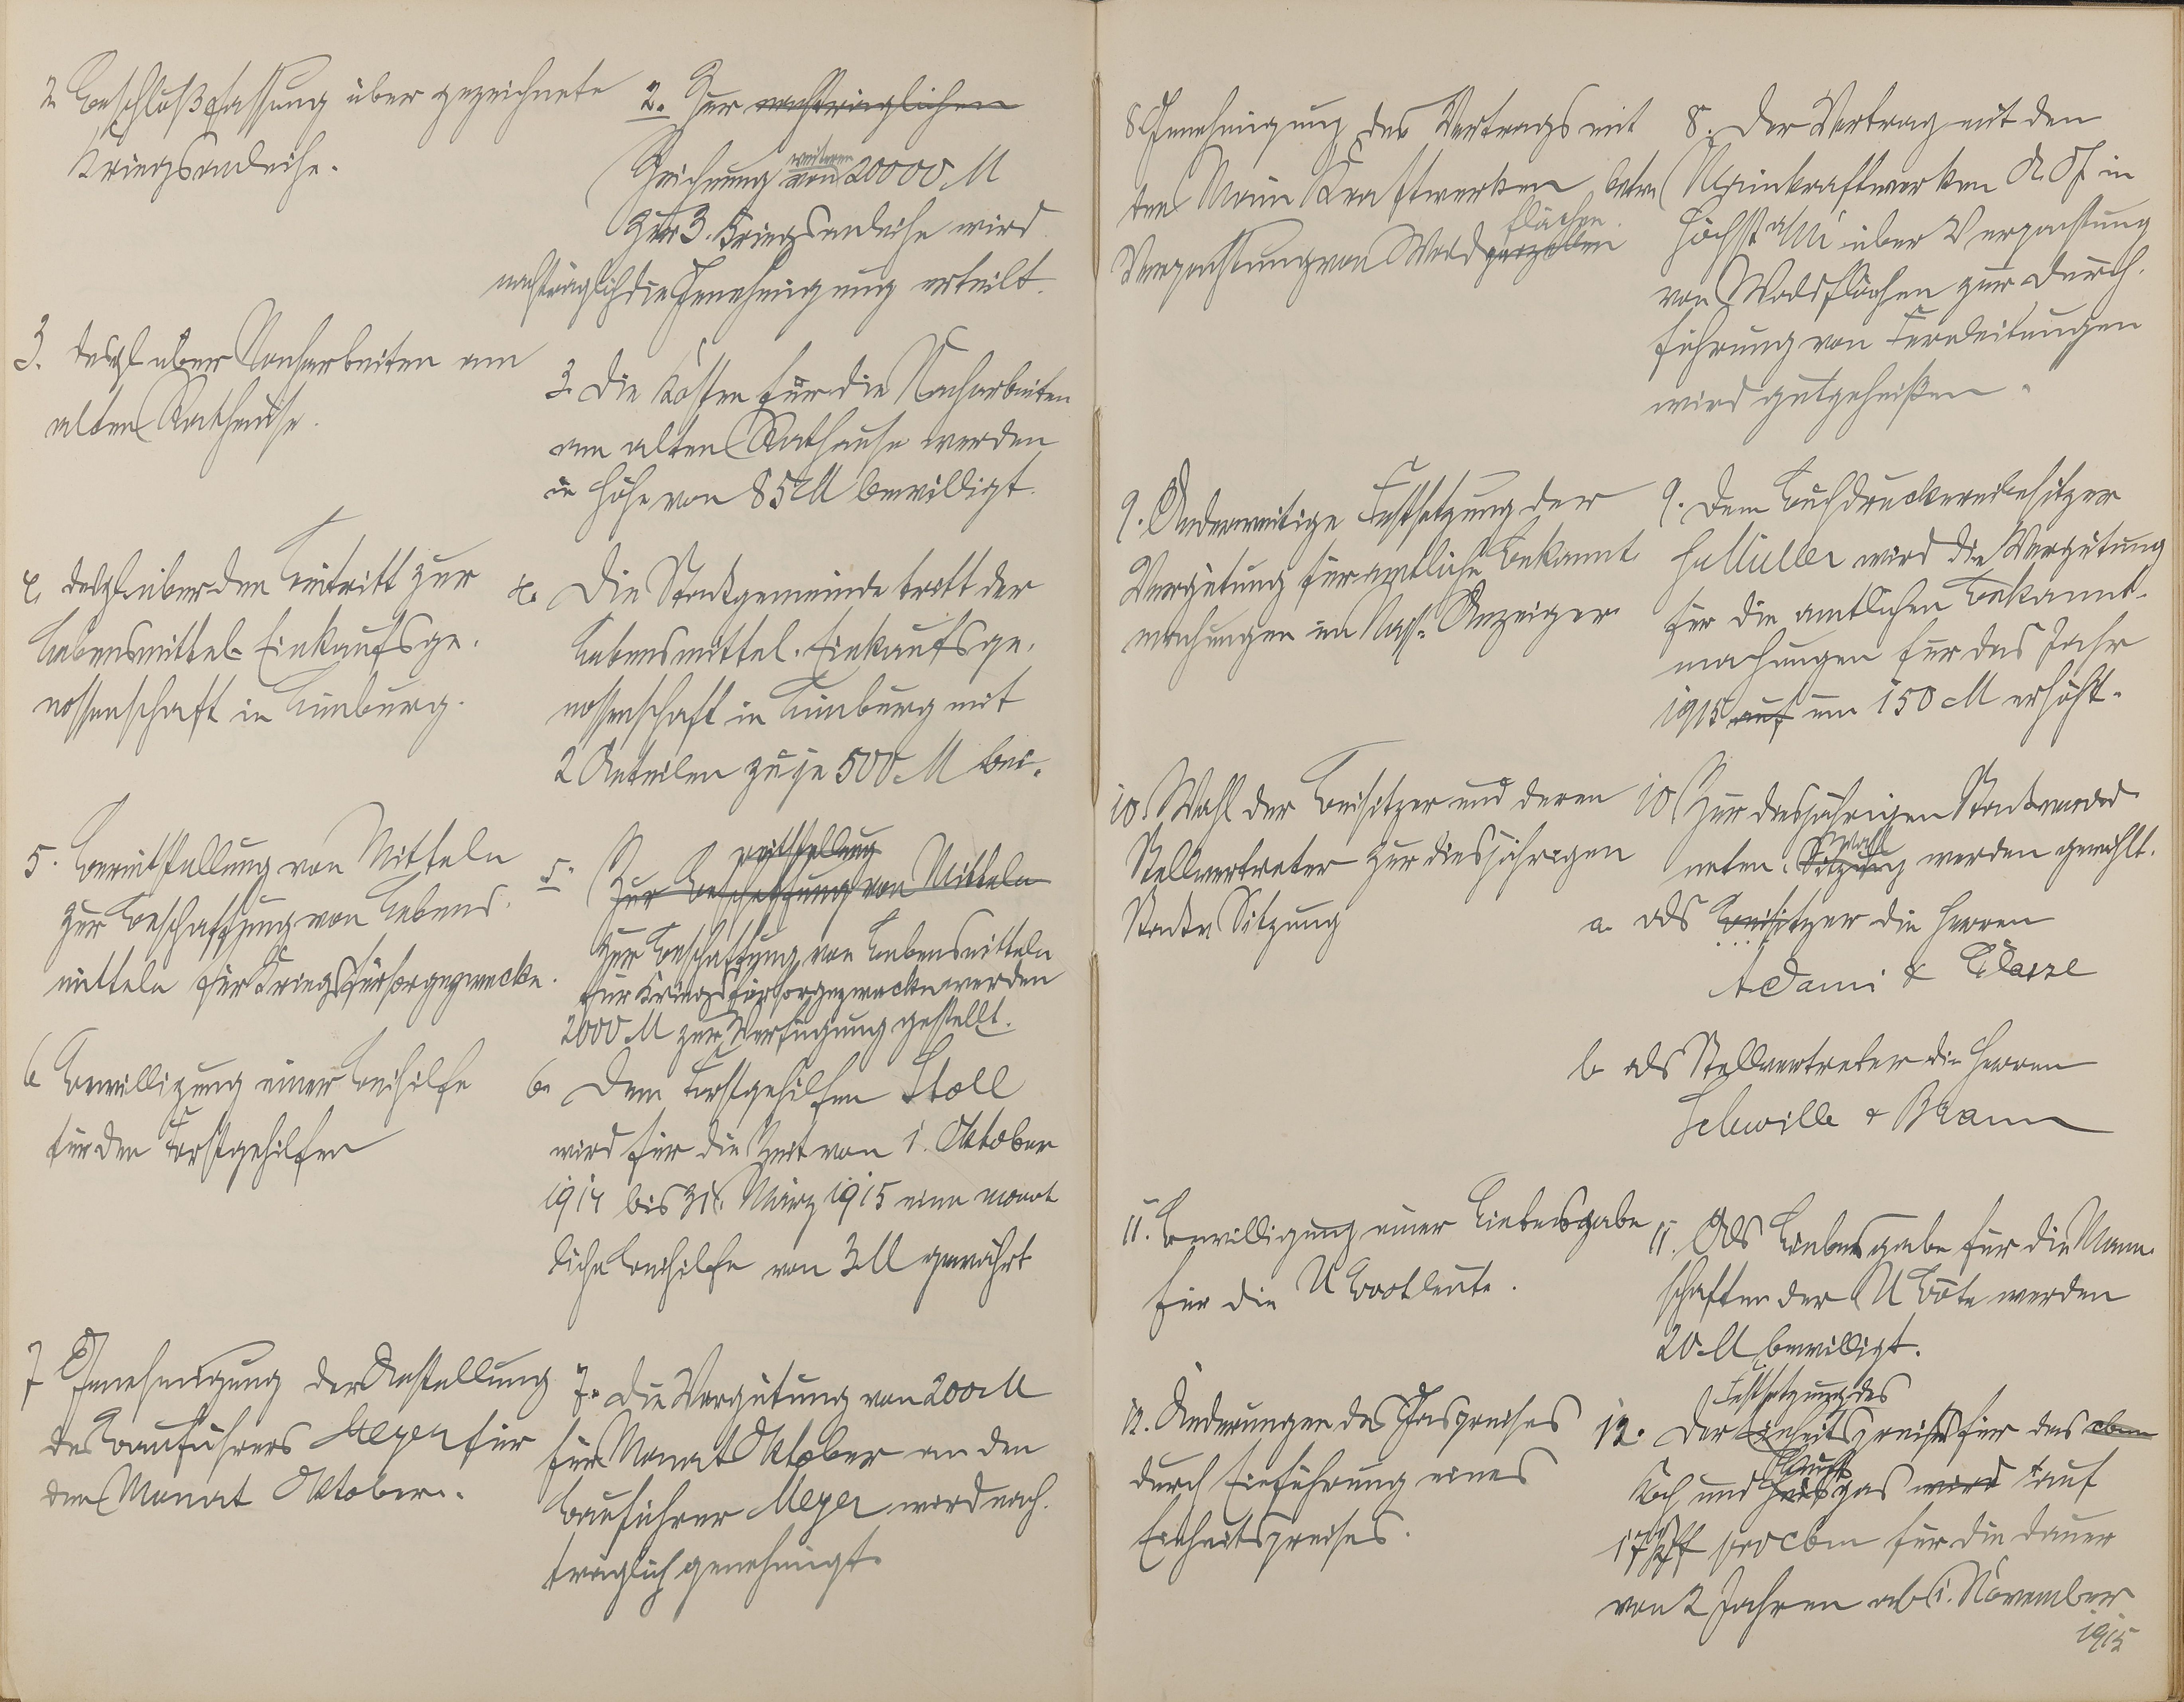 2. Beschlußfassung über gezeichnete
Kriegsanleihe.
2. Zur nachträglichen
Zeichnung von weiteren 20000 M
zur 3. Kriegsanleihe wird
nachträglich die Genehmigung erteilt.
3. desgl über Nacharbeiten am
alten Rathause.
3. Die Kosten für die Nacharbeiten
am alten Rathause werden
in Höhe von 85 M bewilligt.
4. desgl. über den Eintritt zur
Lebensmittel-Einkaufsge-
nossenschaft in Limburg.
4. Die Stadtgemeinde tritt der
Lebensmittel-Einkaufsge-
nossenschaft in Limburg mit
2 Anteilen zu je 500 M bei.
5. Bereitstellung von Mitteln
zur Beschaffung von Lebens-
mitteln für Kriegsfürsorgezwecke.
5. Zur Beschaffung von Mitteln
reitstellung
Zur Beschaffung von Lebensmitteln
für Kriegsfürsorgezwecke werden
2000 M zur Verfügung gestellt.
6 Bewilligung einer Beihilfe
für den Forstgehilfen
6. Dem Forstgehilfen Stoll
wird für die Zeit von 1. Oktober
1914 bis 31. März 1915 eine monat
liche Beihilfe von 3 M gewährt
7 Genehmigung der Anstellung
des Bauführers Meyer für
den Monat Oktober.
7. Die Vergütung von 200 M
für Monat Oktober an den
Bauführer Meyer wird nach-
träglich genehmigt.
8 Genehmigung des Vertrags mit
den Main Kraftwerken betr.
Verpachtung von Waldparzellen
flächen
8. Der Vertrag mit den
Mainkraftwerken A.G. in
Höchst a/M über Verpachtung
von Waldflächen zur Durch-
führung von Fernleitungen
wird gutgeheißen.
9. Anderweitige Festsetzung der
Vergütung für amtliche Bekannt
machungen im Nass. Anzeiger
9. Dem Buchdruckereibesitzer
Müller wird die Vergütung
für die amtlichen Bekannt-
machungen für das Jahr
1915 auf um 150 M erhöht.
10. Wahl der Beisitzer und deren
Stellvertreter zur diesjährigen
Stadtv. Sitzung
10 Zur diesjährigen Stadtverord
neten-Sitzung Wahl werden gewählt.
a. als Beisitzer die Herren
Adami &
b. als Stellvertreter die Herren
Schwille & Braun
11. Bewilligung einer Liebesgabe
für die U Bootleute.
11. Als Liebesgabe für die Mann-
schaften der U Bote werden
20 M bewilligt.
12. Änderungen des Gaspreises
durch Einführung eines
Einheitspreises.
Festsetzung des
12. Der Einheitspreises für das cbm
Koch und gas wird auf
17 Pf pro cbm für die Dauer
von 2 Jahren ab 1. November
1915